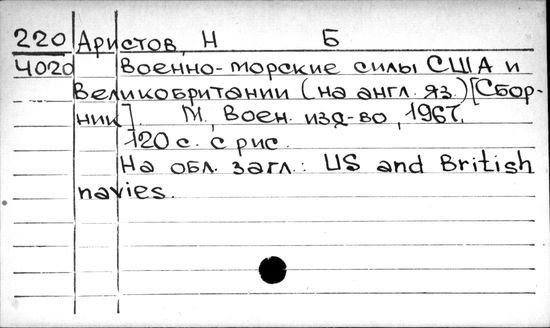 220 Аристов, Н Б
4020 Военно-морские силы США и
Великобритании (на англ. яз.) [Сбор-
ник]. М., Воен. изд-во, 1967.
120 с. с рис.
На обл. загл.: US and British
navies.